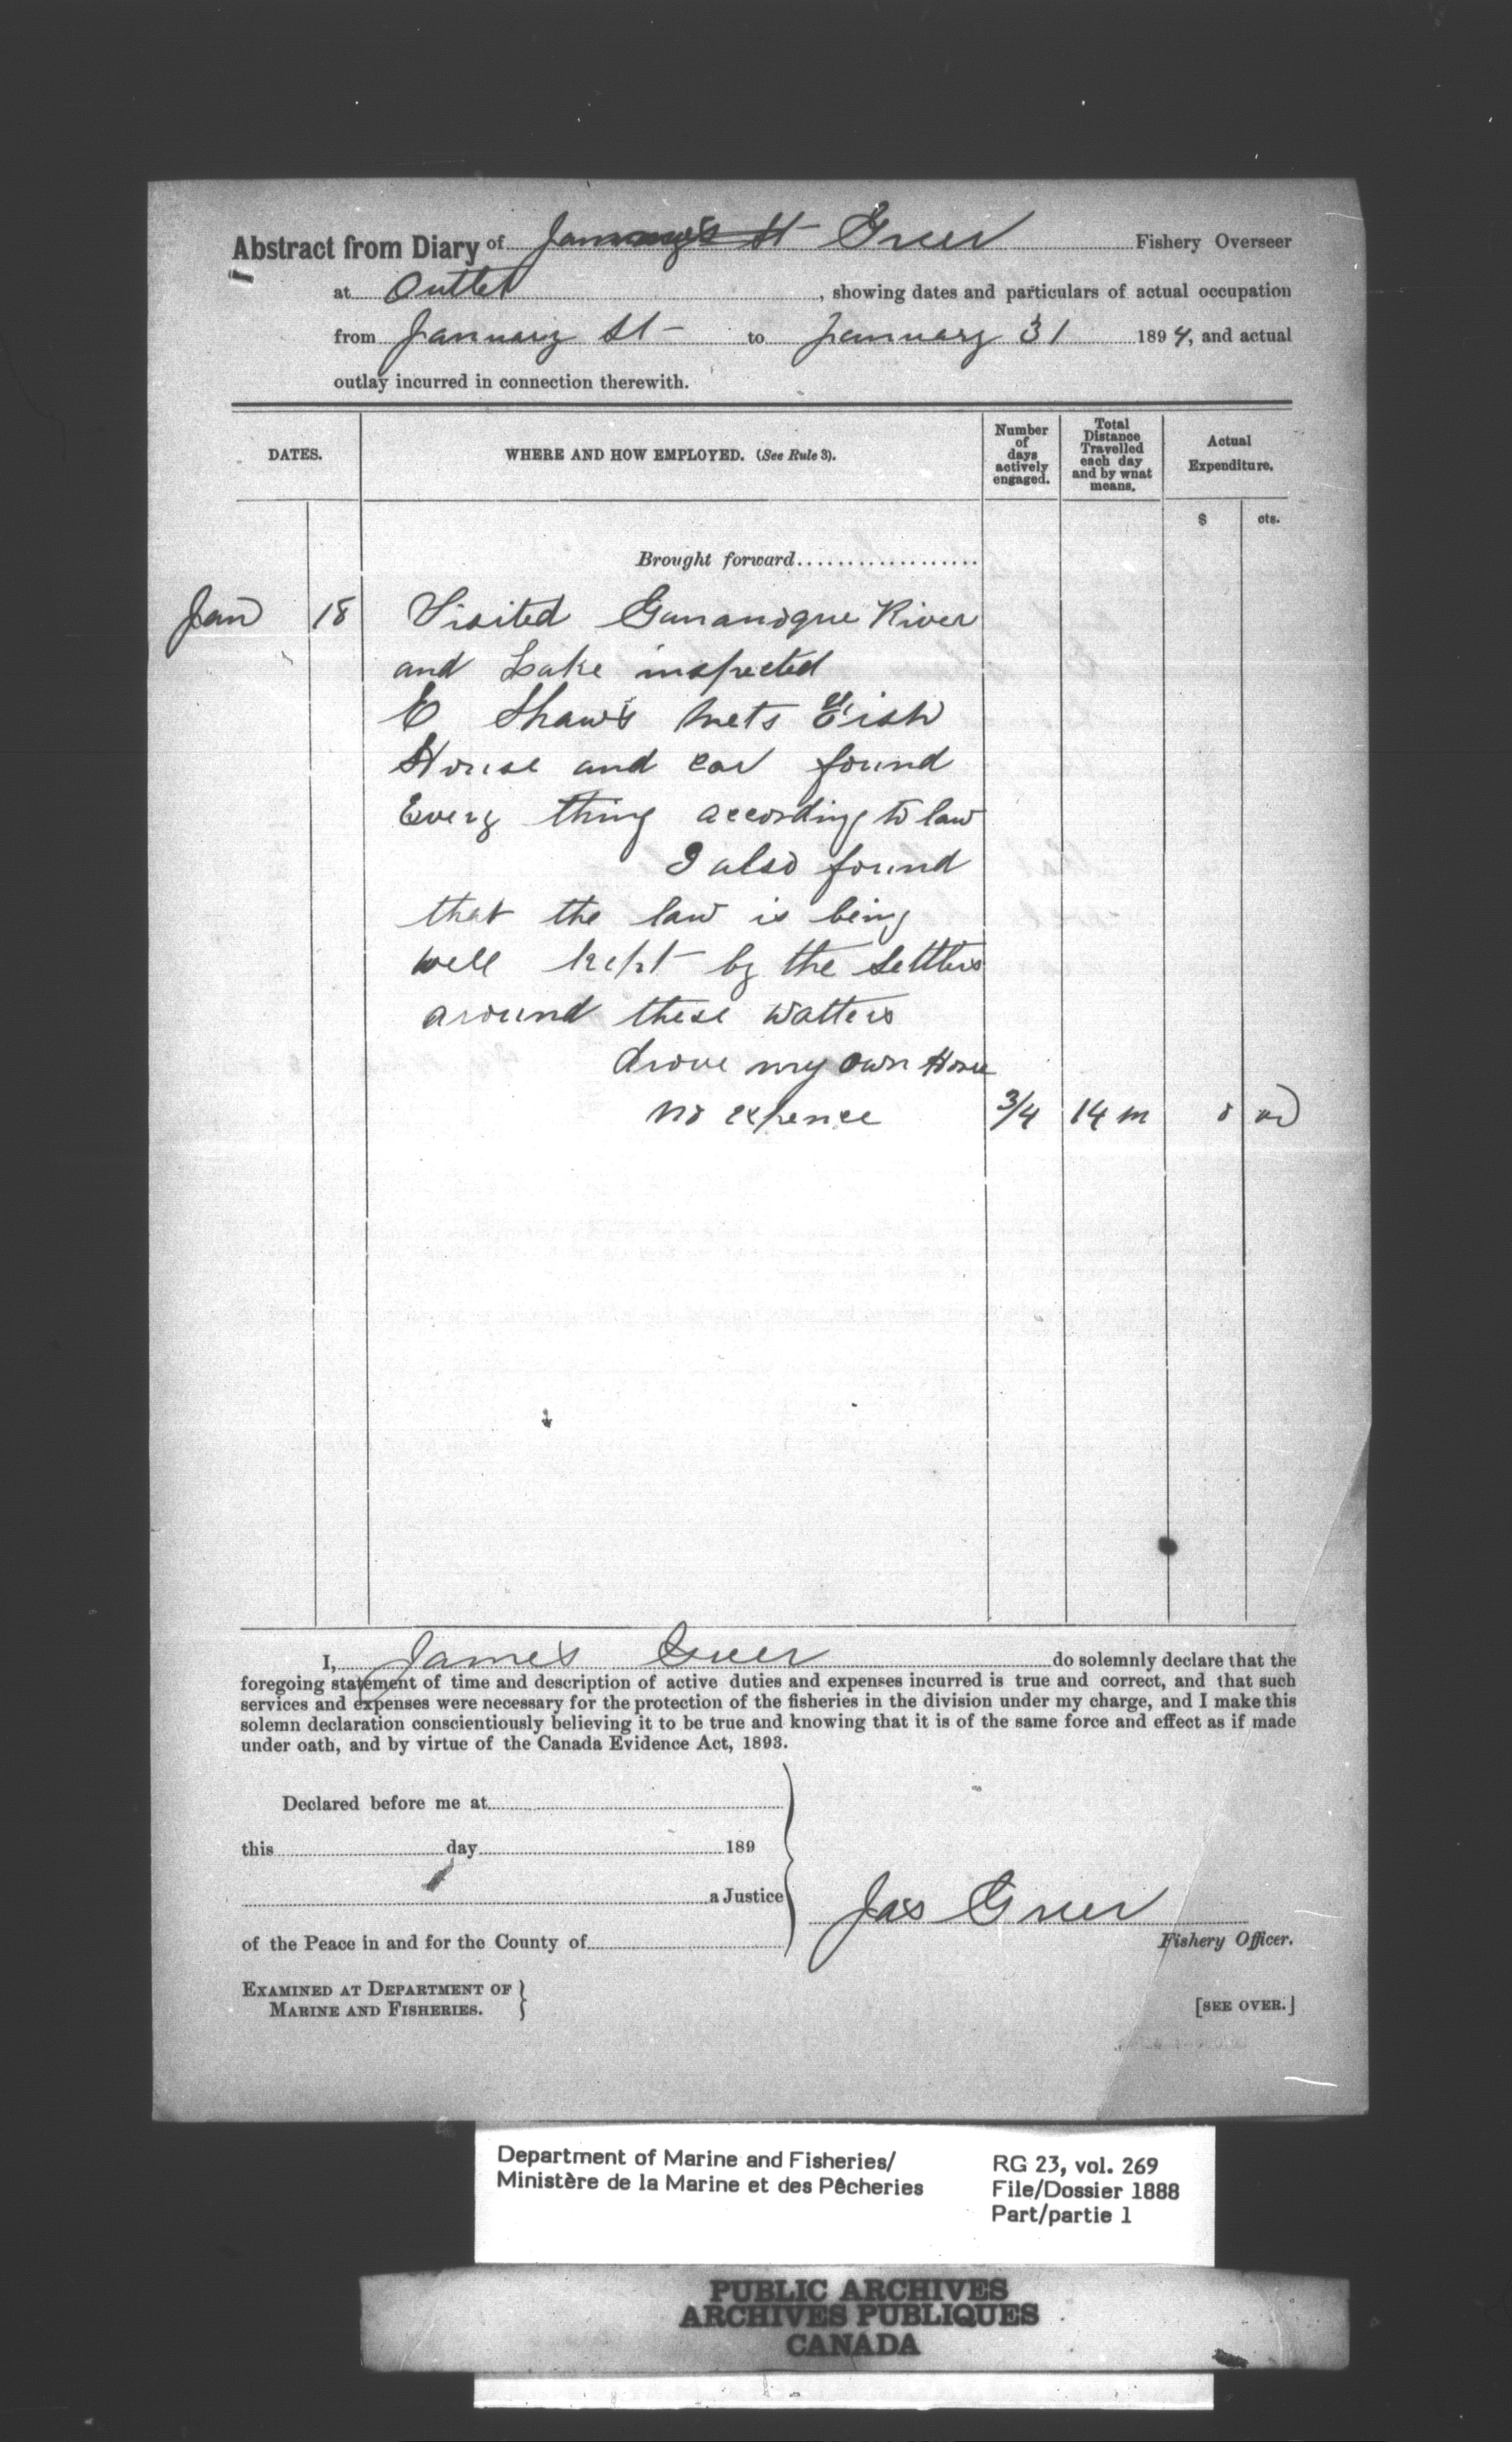 Abstract from Diary of James Greer Fishery Overseer
at Outlet, showing dates and particulars of actual occupation
from January St to January 31 1894, and actual
outlay incurred in connection therewith.
DATES. WHERE AND HOW EMPLOYED. (See Rule 3). Number of days actively engaged. Total Distance Travelled each day and by what means. Actual Expenditure.
$ cts.
Brought forward
Jan 18 Visited Gananoque River
and Lake inspected
E Shaw's nets Fish
House and car found
Every thing according to law
I also found
that the law is being
well kept by the settlers
around these watters
drove my own Horse
no expence 3/4 14 m 0 00
I, James Greer do solemnly declare that the
foregoing statement of time and description of active duties and expenses incurred is true and correct, and that such
services and expenses were necessary for the protection of the fisheries in the division under my charge, and I make this
solemn declaration conscientiously believing it to be true and knowing that it is of the same force and effect as if made
under oath, and by virtue of the Canada Evidence Act, 1893.
Declared before me at
this day 189
a Justice
Jas Greer
of the Peace in and for the County of
Fishery Officer.
EXAMINED AT DEPARTMENT OF
MARINE AND FISHERIES.
[SEE OVER.]
Department of Marine and Fisheries/
Ministère de la Marine et des Pêcheries
RG 23, vol. 269
File/Dossier 1888
Part/partie 1
PUBLIC ARCHIVES
ARCHIVES PUBLIQUES
CANADA